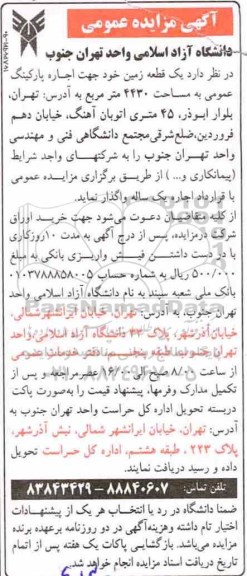 آگهی مزایده عمومی
دانشگاه آزاد اسلامی واحد تهران جنوب
در نظر دارد یک قطعه زمین خود جهت اجاره پارکینگ
عمومی به مساحت ۴۴۳۰ متر مربع به آدرس: تهران،
بلوار ابوذر، ۴۵ متری اتوبان آهنگ، خیابان دهم
فروردین،ضلع‌شرقی‌مجتمع دانشگاهی فنی و مهندسی
واحد تهران جنوب را به شرکتهای واجد شرایط
(پیمانکاری و...) از طریق برگزاری مزایده عمومی
با قرارداد اجاره یک ساله واگذار نماید.
از کلیه متقاضیان دعوت می‌شود جهت خرید اوراق
شرکت در‌مزایده، پس از درج آگهی به مدت ۱۰روزکاری
با در دست داشتن فیش واریزی بانکی به مبلغ
۵۰۰/۰۰۰ ریال به شماره حساب ۰۱۰۳۷۸۸۸۵۸۰۰۵
بانک ملی شعبه سپند به نام دانشگاه آزاد اسلامی واحد
تهران جنوب، به آدرس: تهران، خیابان ایرانشهر شمالی،
خیابان‌آذرشهر، پلاک ۲۲ دانشگاه آزاد اسلامی‌واحد
تهران جنوب، طبقه پنجم، دفتر خدمات عمومی
از ساعت ۸/۰۰ صبح الی ۱۶/۰۰ عصر مراجعه و پس از
تکمیل مدارک وفرمها، پیشنهاد قیمت را به‌صورت پاکت
دربسته تحویل اداره کل حراست واحد تهران جنوب به
آدرس: تهران، خیابان ایرانشهر شمالی، نبش آذرشهر،
پلاک ۲۲۳ ، طبقه هشتم، اداره کل حراست تحویل
داده و رسید دریافت نمایند.
تلفن تماس: ۸۸۸۴۰۶۰۷ – ۸۳۸۴۳۴۲۹
ضمنا دانشگاه در رد یا انتخاب هر یک از پیشنهادات
اختیار تام داشته وهزینه‌آگهی در دو روزنامه برعهده برنده
مزایده می‌باشد. بازگشایی پاکات یک هفته پس از اتمام
تاریخ دریافت اسناد مزایده انجام خواهد شد.